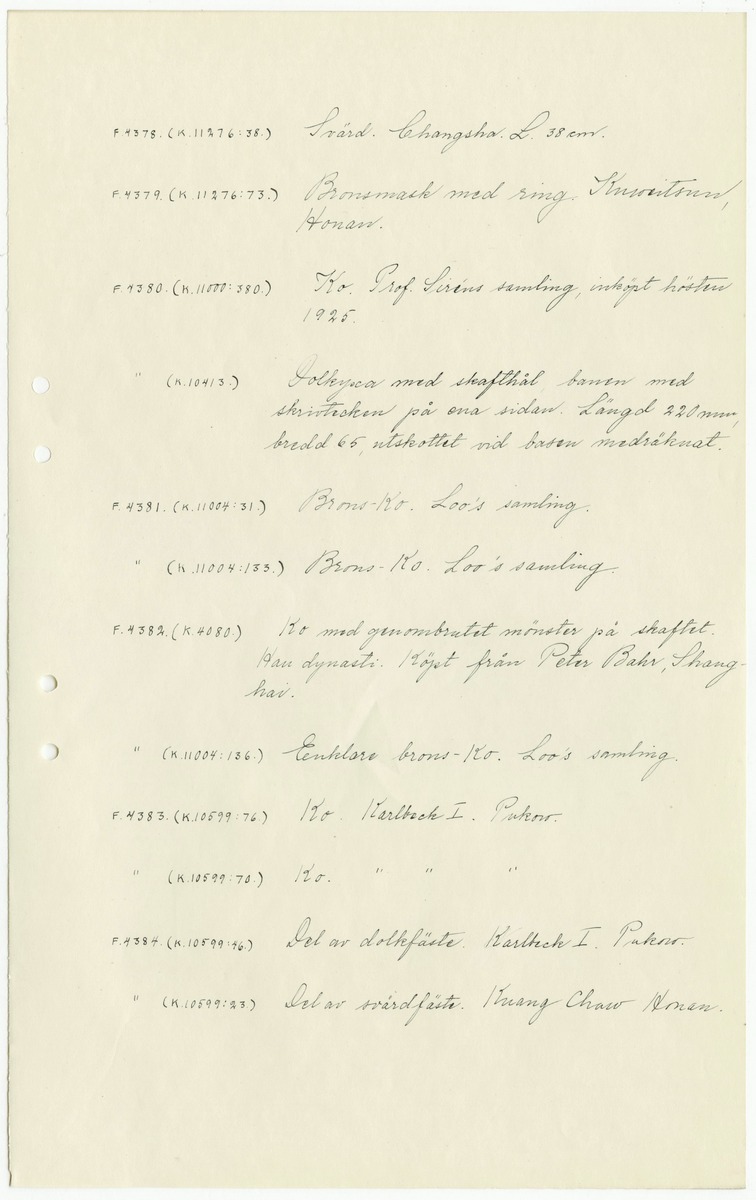 F.4378. (K.11276:38.) Svärd. Changsha. L. 38 cm.
F.4379. (K.11276:73.) Bronsmask med ring. Kuweitsun,
Honan.
F.4380. (K.11000:380.) Ko. Prof. Siréns samling, inköpt hösten
1925.
" (K.10413.) Dolkyxa med skafthål, banen med
skrivtecken på ena sidan. Längd 220 mm,
bredd 65, utskottet vid basen medräknat.
F.4381. (K.11004:31.) Brons-Ko. Loo's samling.
" (K.11004:133.) Brons-Ko. Loo's samling.
F.4382. (K.4080.) Ko med genombrutet mönster på skaftet.
Han dynasti. Köpt från Peter Bahr, Shang-
hai.
" (K.11004:136.) Eenklare brons-Ko. Loo's samling.
F.4383. (K.10599:76.) Ko. Karlbeck I. Pukow.
" (K.10599:70.) Ko. " " "
F.4384. (K.10599:46.) Del av dolkfäste. Karlbeck I. Pukow.
" (K.10599:23.) Del av svärdfäste. Kuang Chow Honan.